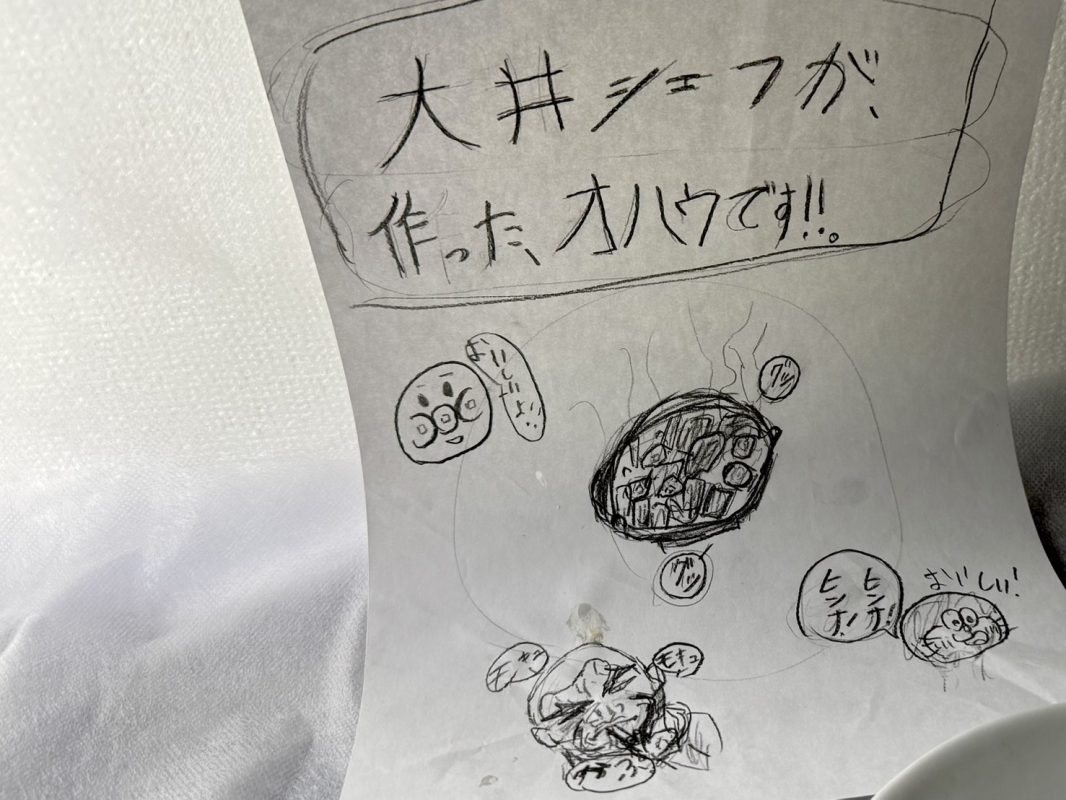 大井シェフが、
作った、オハウです!!。
おいしいよ!!
グツ
グツ
おいしい!
ヒンナ!
ヒンナ!
モキュ